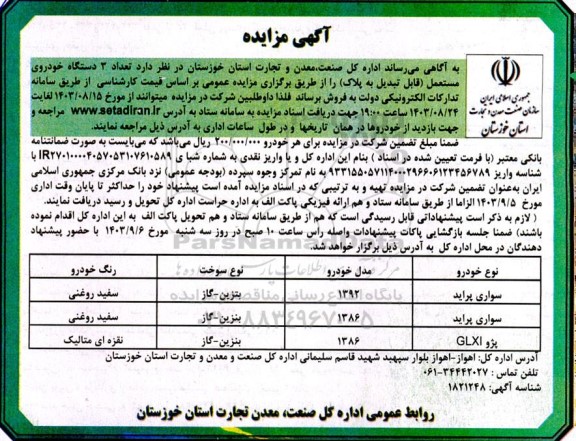 آگهی مزایده
جمهوری اسلامی ایران
سازمان صنعت، معدن و تجارت
استان خوزستان
به آگاهی می‌رساند اداره کل صنعت،معدن و تجارت استان خوزستان در نظر دارد تعداد ۳ دستگاه خودروی
مستعمل (قابل تبدیل به پلاک) را از طریق برگزاری مزایده عمومی بر اساس قیمت کارشناسی از طریق سامانه
تدارکات الکترونیکی دولت به فروش برساند فلذا داوطلبین شرکت در مزایده میتوانند از مورخ ۱۴۰۳/۰۸/۱۵ لغایت
۱۴۰۳/۰۸/۲۴ ساعت ۱۹:۰۰ جهت دریافت اسناد مزایده به سامانه ستاد به آدرس www.setadiran.ir مراجعه و
جهت بازدید از خودروها در همان تاریخها و در طول ساعات اداری به آدرس ذیل مراجعه نمایند.
ضمنا مبلغ تضمین شرکت در مزایده برای هر خودرو ۲۰۰/۰۰۰/۰۰۰ ریال می‌باشد که می‌بایست به صورت ضمانتنامه
بانکی معتبر (با فرمت تعیین شده در اسناد ) بنام این اداره کل و یا واریز نقدی به شماره شبا ی IR۲۷۰۱۰۰۰۰۴۰۵۷۰۵۳۱۰۷۶۱۰۵۸۹ با
شناسه واریز ۹۳۳۱۵۵۰۵۷۱۱۴۰۰۲۹۶۶۰۶۱۲۳۴۵۶۷۸۹ به نام تمرکز وجوه سپرده (بودجه عمومی) نزد بانک مرکزی جمهوری اسلامی
ایران به‌عنوان تضمین شرکت در مزایده تهیه و به ترتیبی که در اسناد مزایده آمده است پیشنهاد خود را حداکثر تا پایان وقت اداری
مورخ ۱۴۰۳/۹/۵ الزاما از طریق سامانه ستاد و هم ارائه فیزیکی پاکت الف به اداره حراست اداره کل تحویل و رسید دریافت نمایند.
( لازم به ذکر است پیشنهاداتی قابل رسیدگی است که هم از طریق سامانه ستاد و هم تحویل پاکت الف به این اداره کل اقدام نموده
باشند) ضمنا جلسه بازگشایی پاکات پیشنهادات واصله راس ساعت ۱۰ صبح در روز سه شنبه مورخ ۱۴۰۳/۹/۶ با حضور پیشنهاد
دهندگان در محل اداره کل به آدرس ذیل برگزار خواهد شد.
نوع خودرو مدل خودرو نوع سوخت رنگ خودرو
سواری پراید ۱۳۹۲ بنزین-گاز سفید روغنی
سواری پراید ۱۳۸۶ بنزین-گاز سفید روغنی
پژو GLXI ۱۳۸۶ بنزین-گاز نقره ای متالیک
آدرس اداره کل: اهواز-اهواز بلوار سپهبد شهید قاسم سلیمانی اداره کل صنعت و معدن و تجارت استان خوزستان
تلفن تماس : ۳۴۴۴۲۰۲۷-۰۶۱
شناسه آگهی: ۱۸۲۱۲۴۸
روابط عمومی اداره کل صنعت، معدن تجارت استان خوزستان